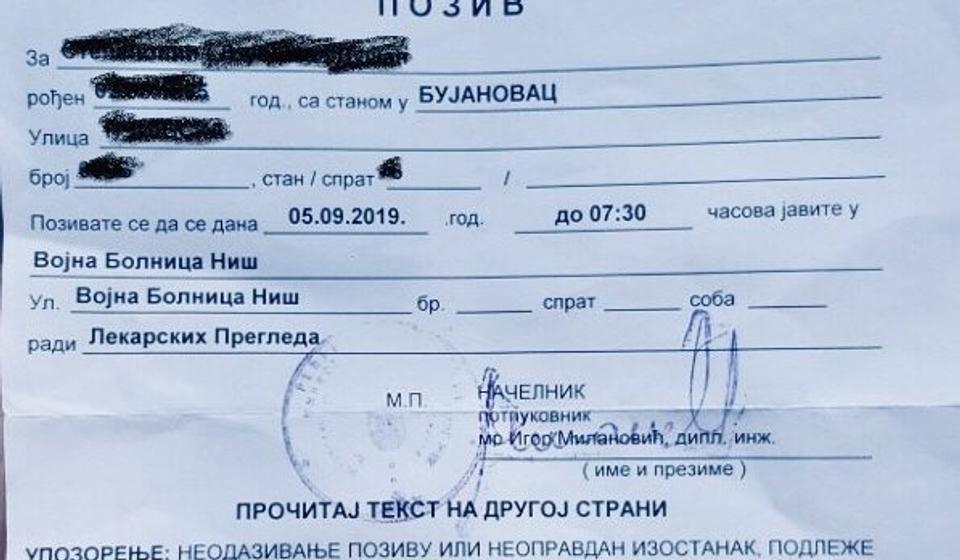 ПОЗИВ
За
рођен год., са станом у БУЈАНОВАЦ
Улица
број , стан / спрат /
Позивате се да се дана 05.09.2019. .год. до 07:30 часова јавите у
Војна Болница Ниш
Ул. Војна Болница Ниш бр. спрат соба
ради Лекарских Прегледа
М.П. НАЧЕЛНИК
потпуковник
мр Игор Милановић, дипл. инж.
( име и презиме )
ПРОЧИТАЈ ТЕКСТ НА ДРУГОЈ СТРАНИ
УПОЗОРЕЊЕ: НЕОДАЗИВАЊЕ ПОЗИВУ ИЛИ НЕОПРАВДАН ИЗОСТАНАК, ПОДЛЕЖЕ